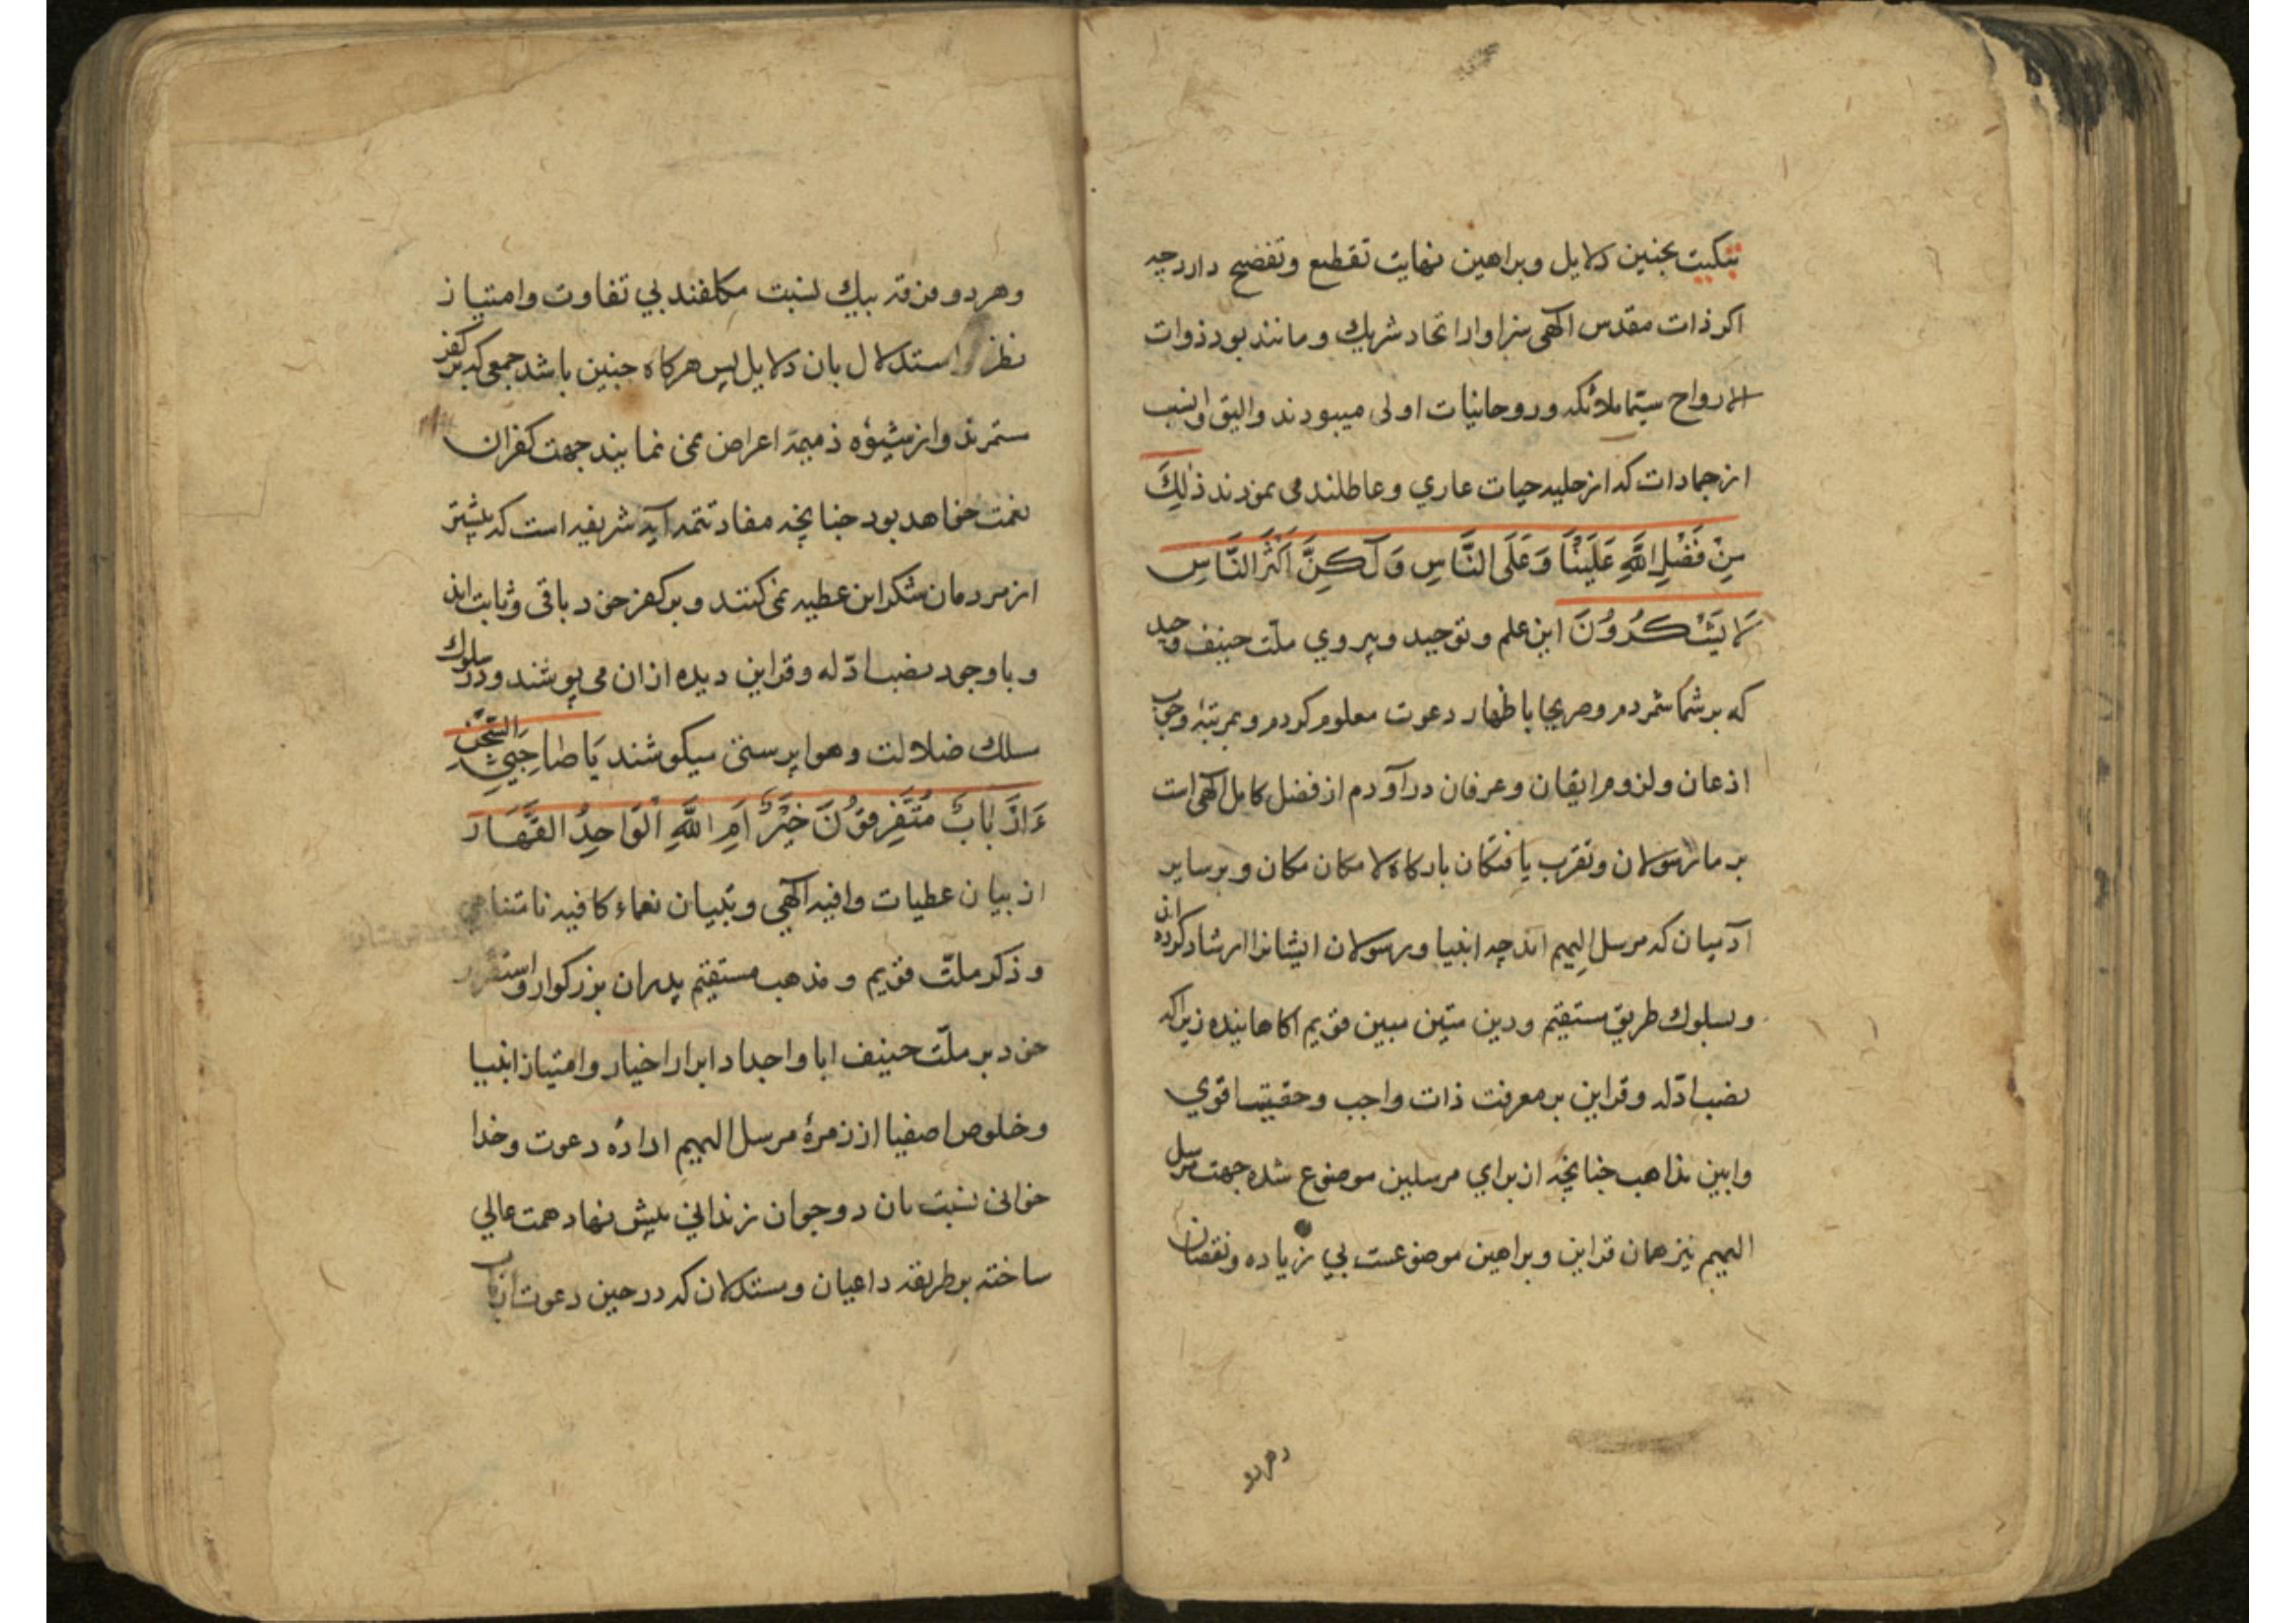 تبکیت بچنین دلایل وبراهین نهایت تقطیع وتفضیح دارد چه
اکر ذات مقدس الهی سزاوار اتحاد شریك و مانند بود ذوات
الارواح سیّما ملائکه و روحانیات اولی میبودند والیق وانسب
از جمادات که از حلیه حیات عاري و عاطلند می نمودند ذٰلِكَ
مِنْ فَضْلِ اللّٰهِ عَلَيْنَا وَعَلَى النَّاسِ وَلٰكِنَّ اَكْثَرَ النَّاسِ
لَا يَشْكُرُوْنَ این علم و توحید و پیروي ملّت حنیف وحید
که بر شما شمردم وصریحا باظهار دعوت معلوم کردم وبمرتبهٔ وجوب
اذعان ولزوم ایقان و عرفان درآوردم از فضل کامل الهی است
بر ما رسولان وتقرب یافتکان بارکاه لا مکان مکان و بر سایر
آدمیان که مرسل الیهم اند چه انبیا ورسولان ایشانرا ارشاد کرده اند
وبسلوك طریق مستقیم ودین متین مبین قویم اکاهانیده زیرا که
نصب ادّله وقراین بر معرفت ذات واجب و حقیت قوي
وابین مذاهب چنانچه از براي مرسلین موضوع شده جهت مرسل
الیهم نیز همان قراین وبراهین موضوعست بي زیاده ونقصان
وهر دو
وهر دو فرقه بیك نسبت مکلفند بي تفاوت وامتیاز
نظر استدلال بان دلایل پس هرکاه چنین باشد جمعی که بر کفر
مستمرند واز شیوهٔ ذمیمه اعراض نمی نمایند جهت کفران
نعمت خواهد بود چنانچه مفاد تتمه آیه شریفه است که بیشتر
از مردمان شکر این عطیه نمی کنند و بر کفر خود باقی وثابت اند
و باوجود نصب ادّله وقراین دیده ازان می پوشند ودر سلوك
سلك ضلالت وهوا پرستی میکوشند يَا صَاحِبَيِ السِّجْنِ
ءَاَرْبَابٌ مُتَفَرِّقُوْنَ خَيْرٌ اَمِ اللّٰهِ الْوَاحِدُ الْقَهَّار
از بیان عطیات وافیه الهي وتبیان نعماء کافیه نامتناهي
و ذکر ملّت قویم و مذهب مستقیم پدران بزرکوار واستقرار
خود بر ملّت حنیف ابا واجداد ابرار اخیار وامتیاز انبیا
وخلوص اصفیا از زمرهٔ مرسل الیهم ارادهٔ دعوت وخدا
خوانی نسبت بان دو جوان زنداني پیش نهاد همت عالي
ساخته بر طریقه داعیان ومستدلان که در حین دعوت